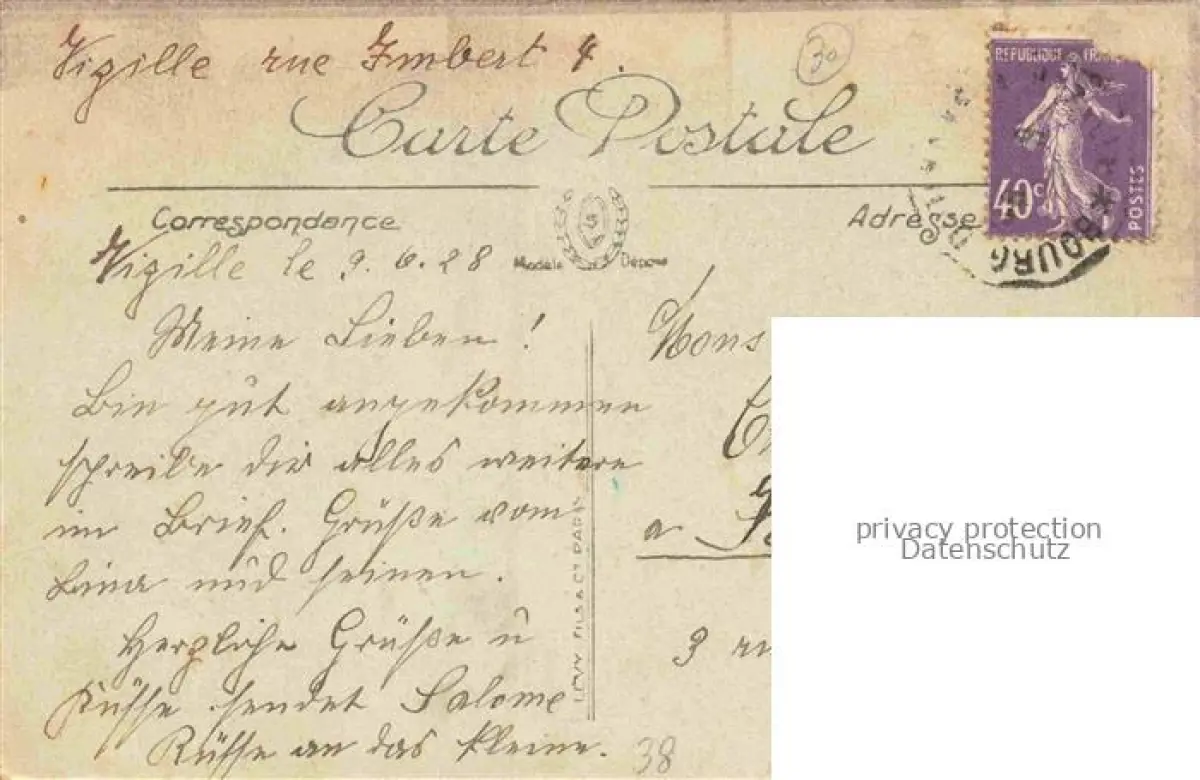 Vizille rue Imbert 4.
30
Carte Postale
REPUBLIQUE FRANC
40c
POSTES
BOURG
Correspondance
Adresse
Modèle Déposé
Vizille le 9.6.28
Meine Lieben!
Bin gut angekommen
schreibe dir alles weitere
im Brief. Grüße vom
Lina und seinen.
Herzliche Grüße u
Küsse sendet Salome
Küsse an das kleine.
38
LÉVY FILS & Cie PARIS
Mons
a
9 ru
privacy protection
Datenschutz